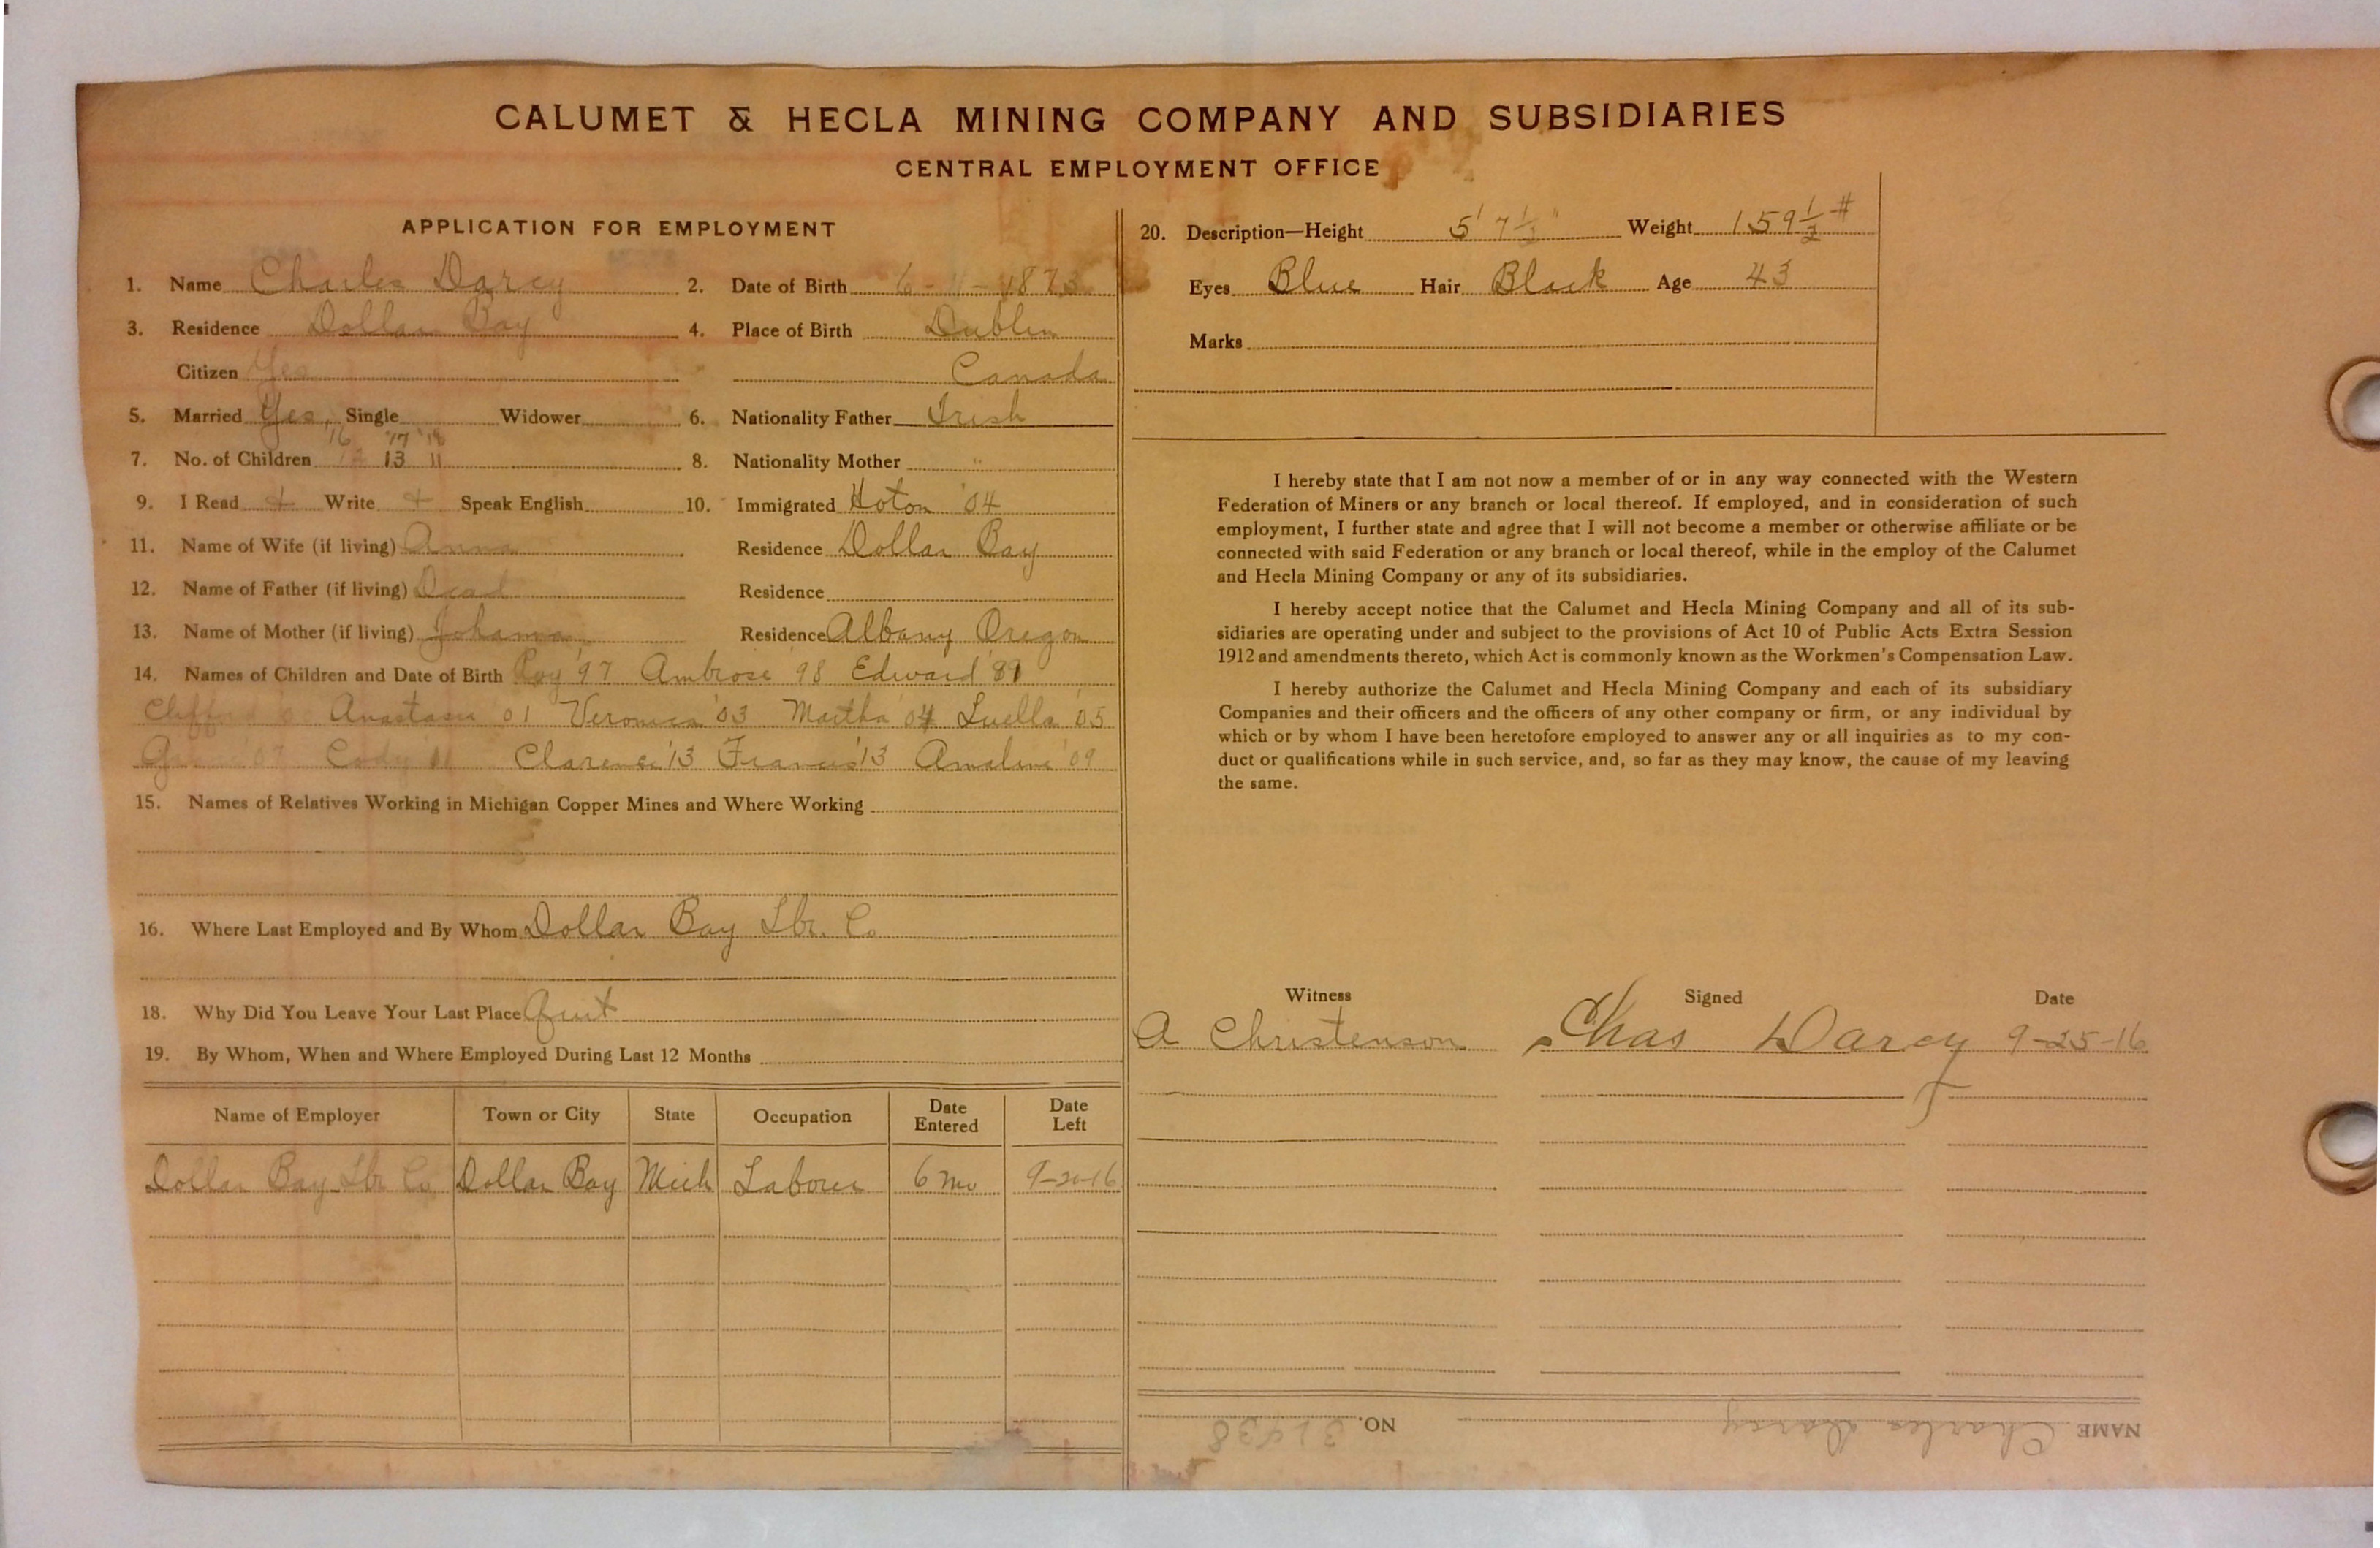 CALUMET & HECLA MINING COMPANY AND SUBSIDIARIES
CENTRAL EMPLOYMENT OFFICE
APPLICATION FOR EMPLOYMENT
1. Name Charles Darcy 2. Date of Birth 6-11-1873
3. Residence Dollar Bay 4. Place of Birth Dublin
Citizen Yes Canada
5. Married Yes Single Widower 6. Nationality Father Irish
'16 '17 '18
7. No. of Children 12 13 11 8. Nationality Mother "
9. I Read + Write + Speak English 10. Immigrated Hoton '04
11. Name of Wife (if living) Anna Residence Dollar Bay
12. Name of Father (if living) Dead Residence
13. Name of Mother (if living) Johanna Residence Albany Oregon
14. Names of Children and Date of Birth Roy '97 Ambrose '98 Edward '89
Clifford Anastasia '01 Veronica '03 Martha '04 Luella '05
'07 Cody Clarence '13 Francis '13 Amaline '09
15. Names of Relatives Working in Michigan Copper Mines and Where Working
16. Where Last Employed and By Whom Dollar Bay Lbr. Co
18. Why Did You Leave Your Last Place Quit
19. By Whom, When and Where Employed During Last 12 Months
Name of Employer Town or City State Occupation Date Entered Date Left
Dollar Bay Lbr Co Dollar Bay Mich Laborer 6 mo 9-20-16
20. Description—Height 5' 7½" Weight 159½ #
Eyes Blue Hair Black Age 43
Marks
I hereby state that I am not now a member of or in any way connected with the Western
Federation of Miners or any branch or local thereof. If employed, and in consideration of such
employment, I further state and agree that I will not become a member or otherwise affiliate or be
connected with said Federation or any branch or local thereof, while in the employ of the Calumet
and Hecla Mining Company or any of its subsidiaries.
I hereby accept notice that the Calumet and Hecla Mining Company and all of its sub-
sidiaries are operating under and subject to the provisions of Act 10 of Public Acts Extra Session
1912 and amendments thereto, which Act is commonly known as the Workmen's Compensation Law.
I hereby authorize the Calumet and Hecla Mining Company and each of its subsidiary
Companies and their officers and the officers of any other company or firm, or any individual by
which or by whom I have been heretofore employed to answer any or all inquiries as to my con-
duct or qualifications while in such service, and, so far as they may know, the cause of my leaving
the same.
Witness Signed Date
A Christenson Chas Darcy 9-25-16
NAME Charles Darcy NO. 31438